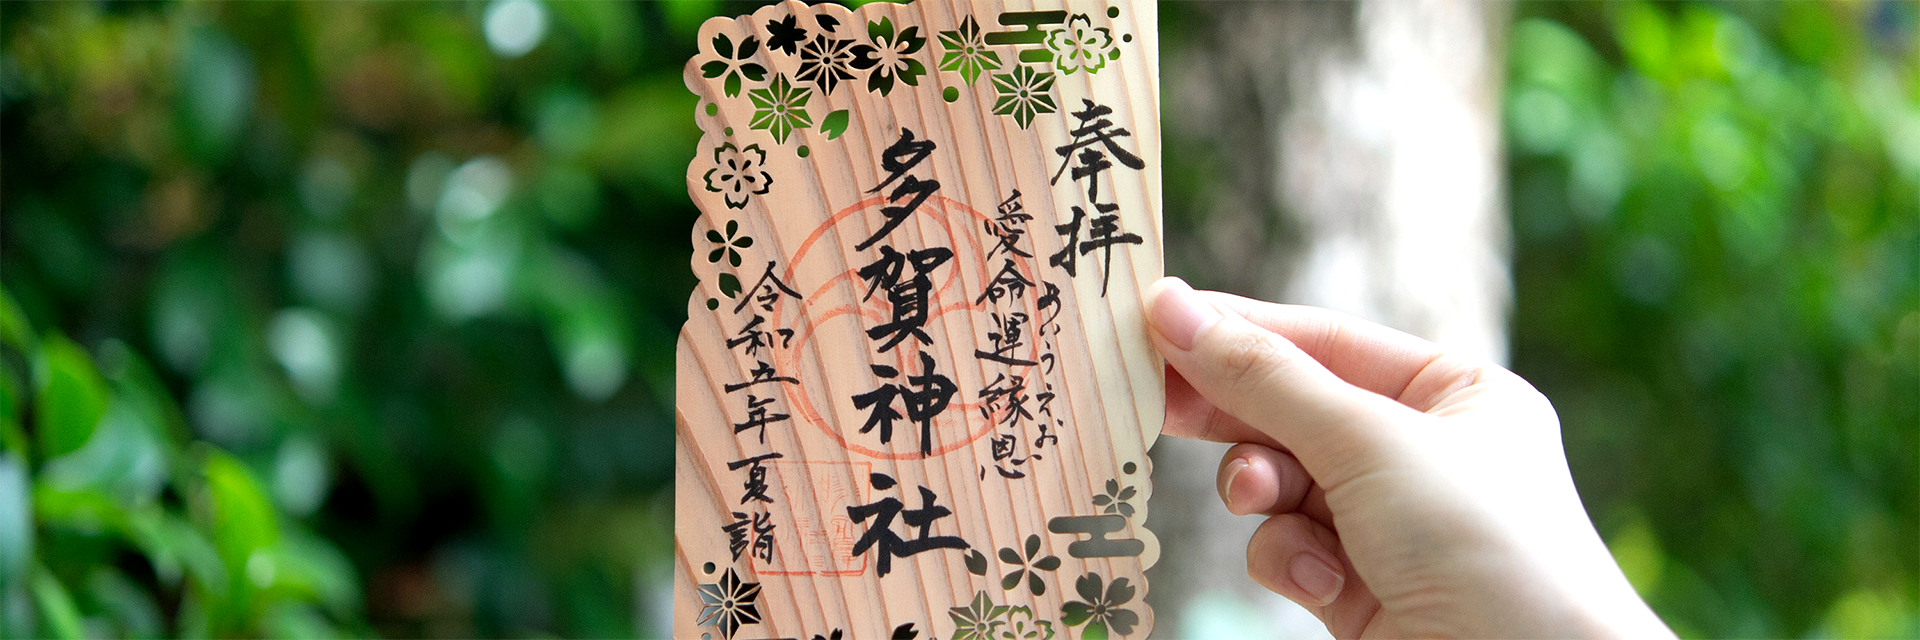 奉拝
あいうえお
愛命運縁恩
多賀神社
令和五年夏詣